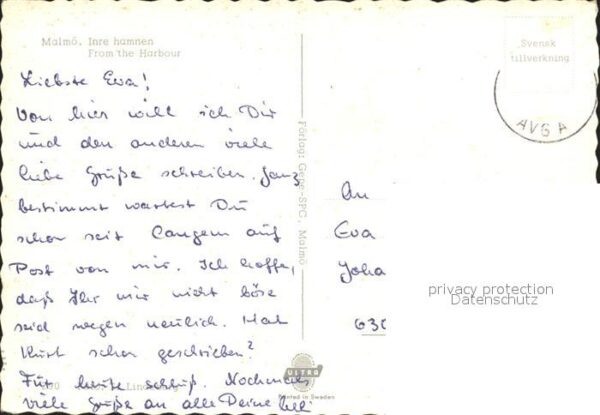 Malmö. Inre hamnen
From the Harbour
Liebste Eva!
Von hier will ich Dir
und den anderen viele
liebe Grüße schreiben. Ganz
bestimmt wartest Du
schon seit Langem auf
Post von mir. Ich hoffe,
daß Ihr mir nicht böse
seid wegen neulich. Hat
Kurt schon geschrieben?
Für heute schluß. Nochmals
viele Grüße an alle Deine
Förlag: Gege-SPC, Malmö
ULTRA
Printed in Sweden
Svensk
tillverkning
AVGA
An
Eva
Joha
630
privacy protection
Datenschutz